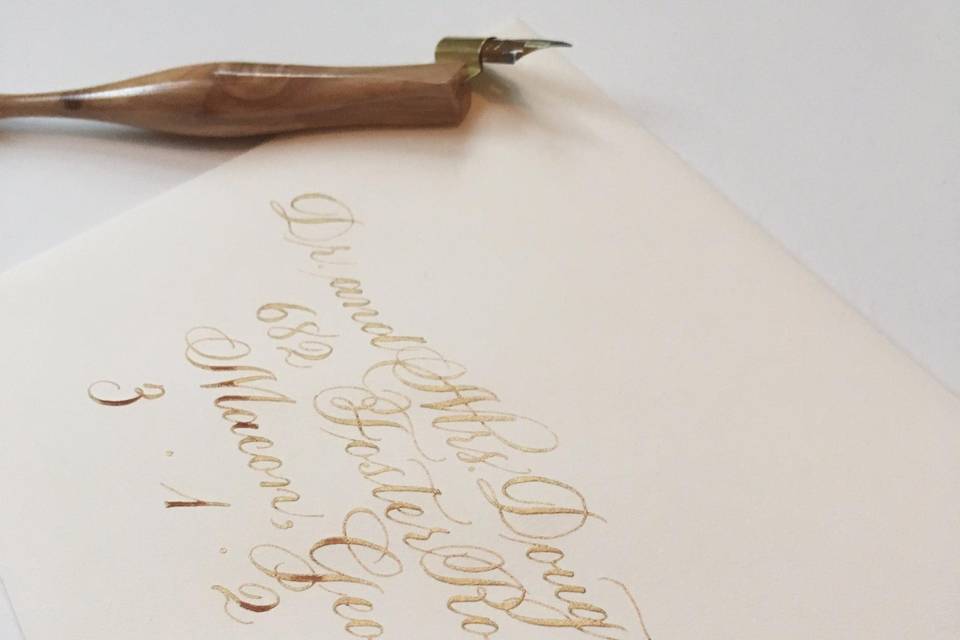 Dr. and Mrs. Doug
682 Foster Ro
Macon, Geo
3 . 1 . 2